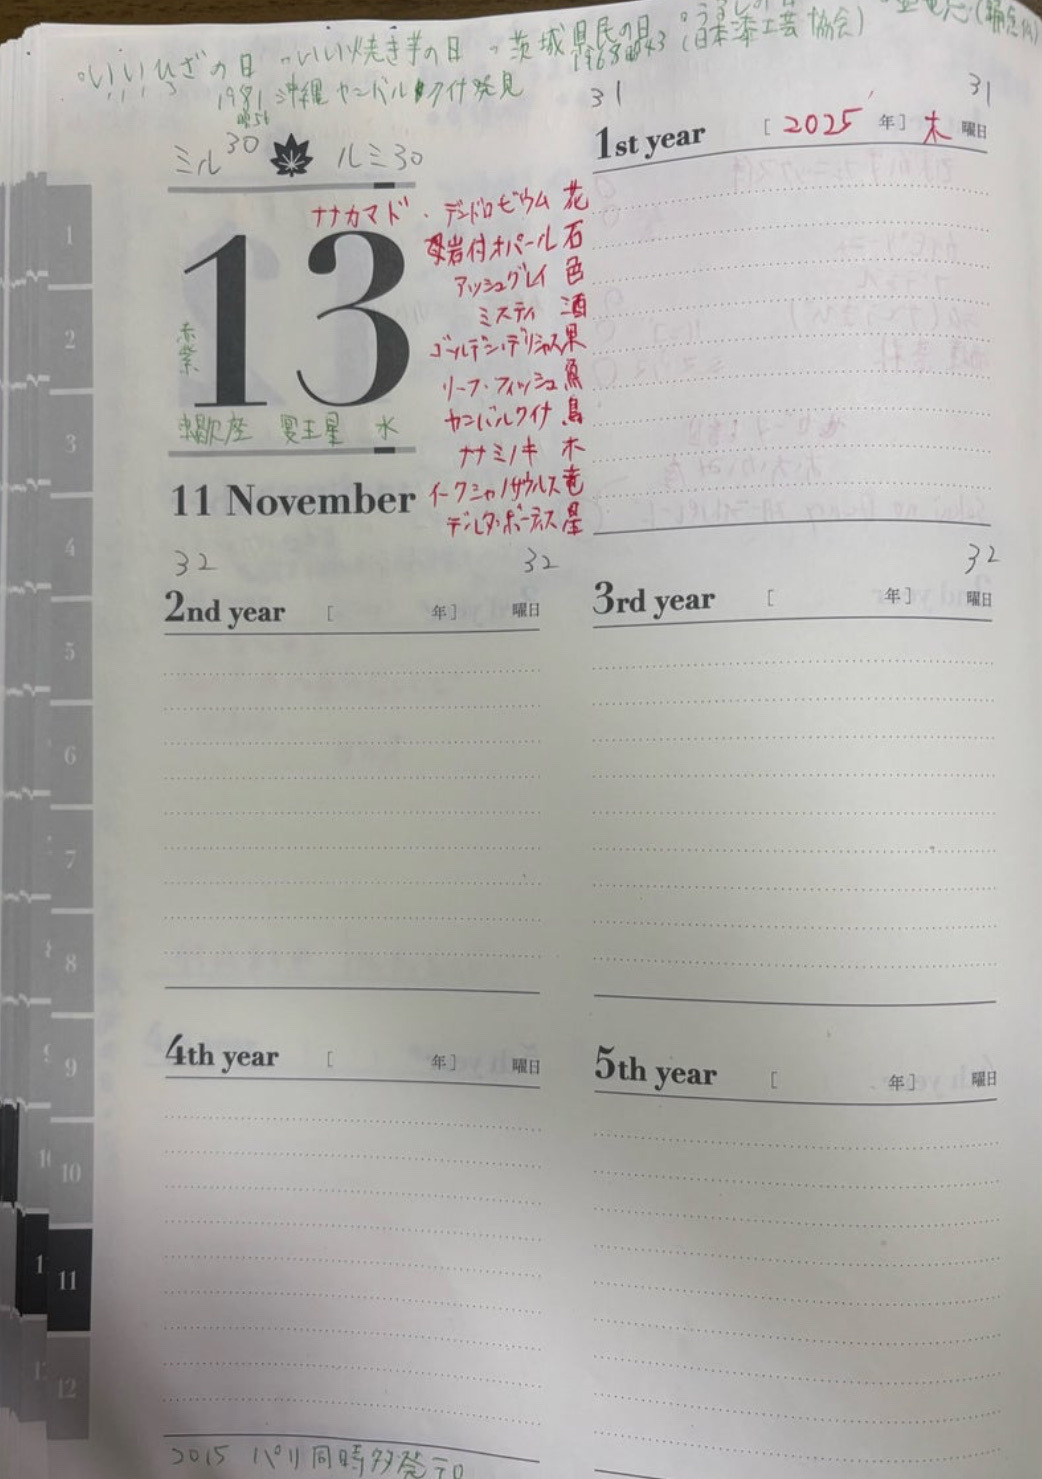 。いいひざの日 。いい焼き芋の日 。茨城県民の日 。うるしの日
1968 昭43 (日本漆工芸協会)
1981 沖縄ヤンバルクイナ発見
昭56
31 31
1st year [ 2025 年] 木 曜日
ミル30 ルミ30
ナナカマド・デンドロビウム 花
母岩付オパール 石
アッシュグレイ 色
ミスティ 酒
ゴールデン・デリシャス 果
リーフ・フィッシュ 魚
ヤンバルクイナ 鳥
ナナミノキ 木
イークシャノサウルス 竜
デルタ・ボーティス 星
13
赤紫
蠍座 冥王星 水
11 November
32 32 32
2nd year [ 年] 曜日
3rd year [ 年] 曜日
4th year [ 年] 曜日
5th year [ 年] 曜日
2015 パリ同時多発テロ
1
2
3
4
5
6
7
8
9
10
11
12